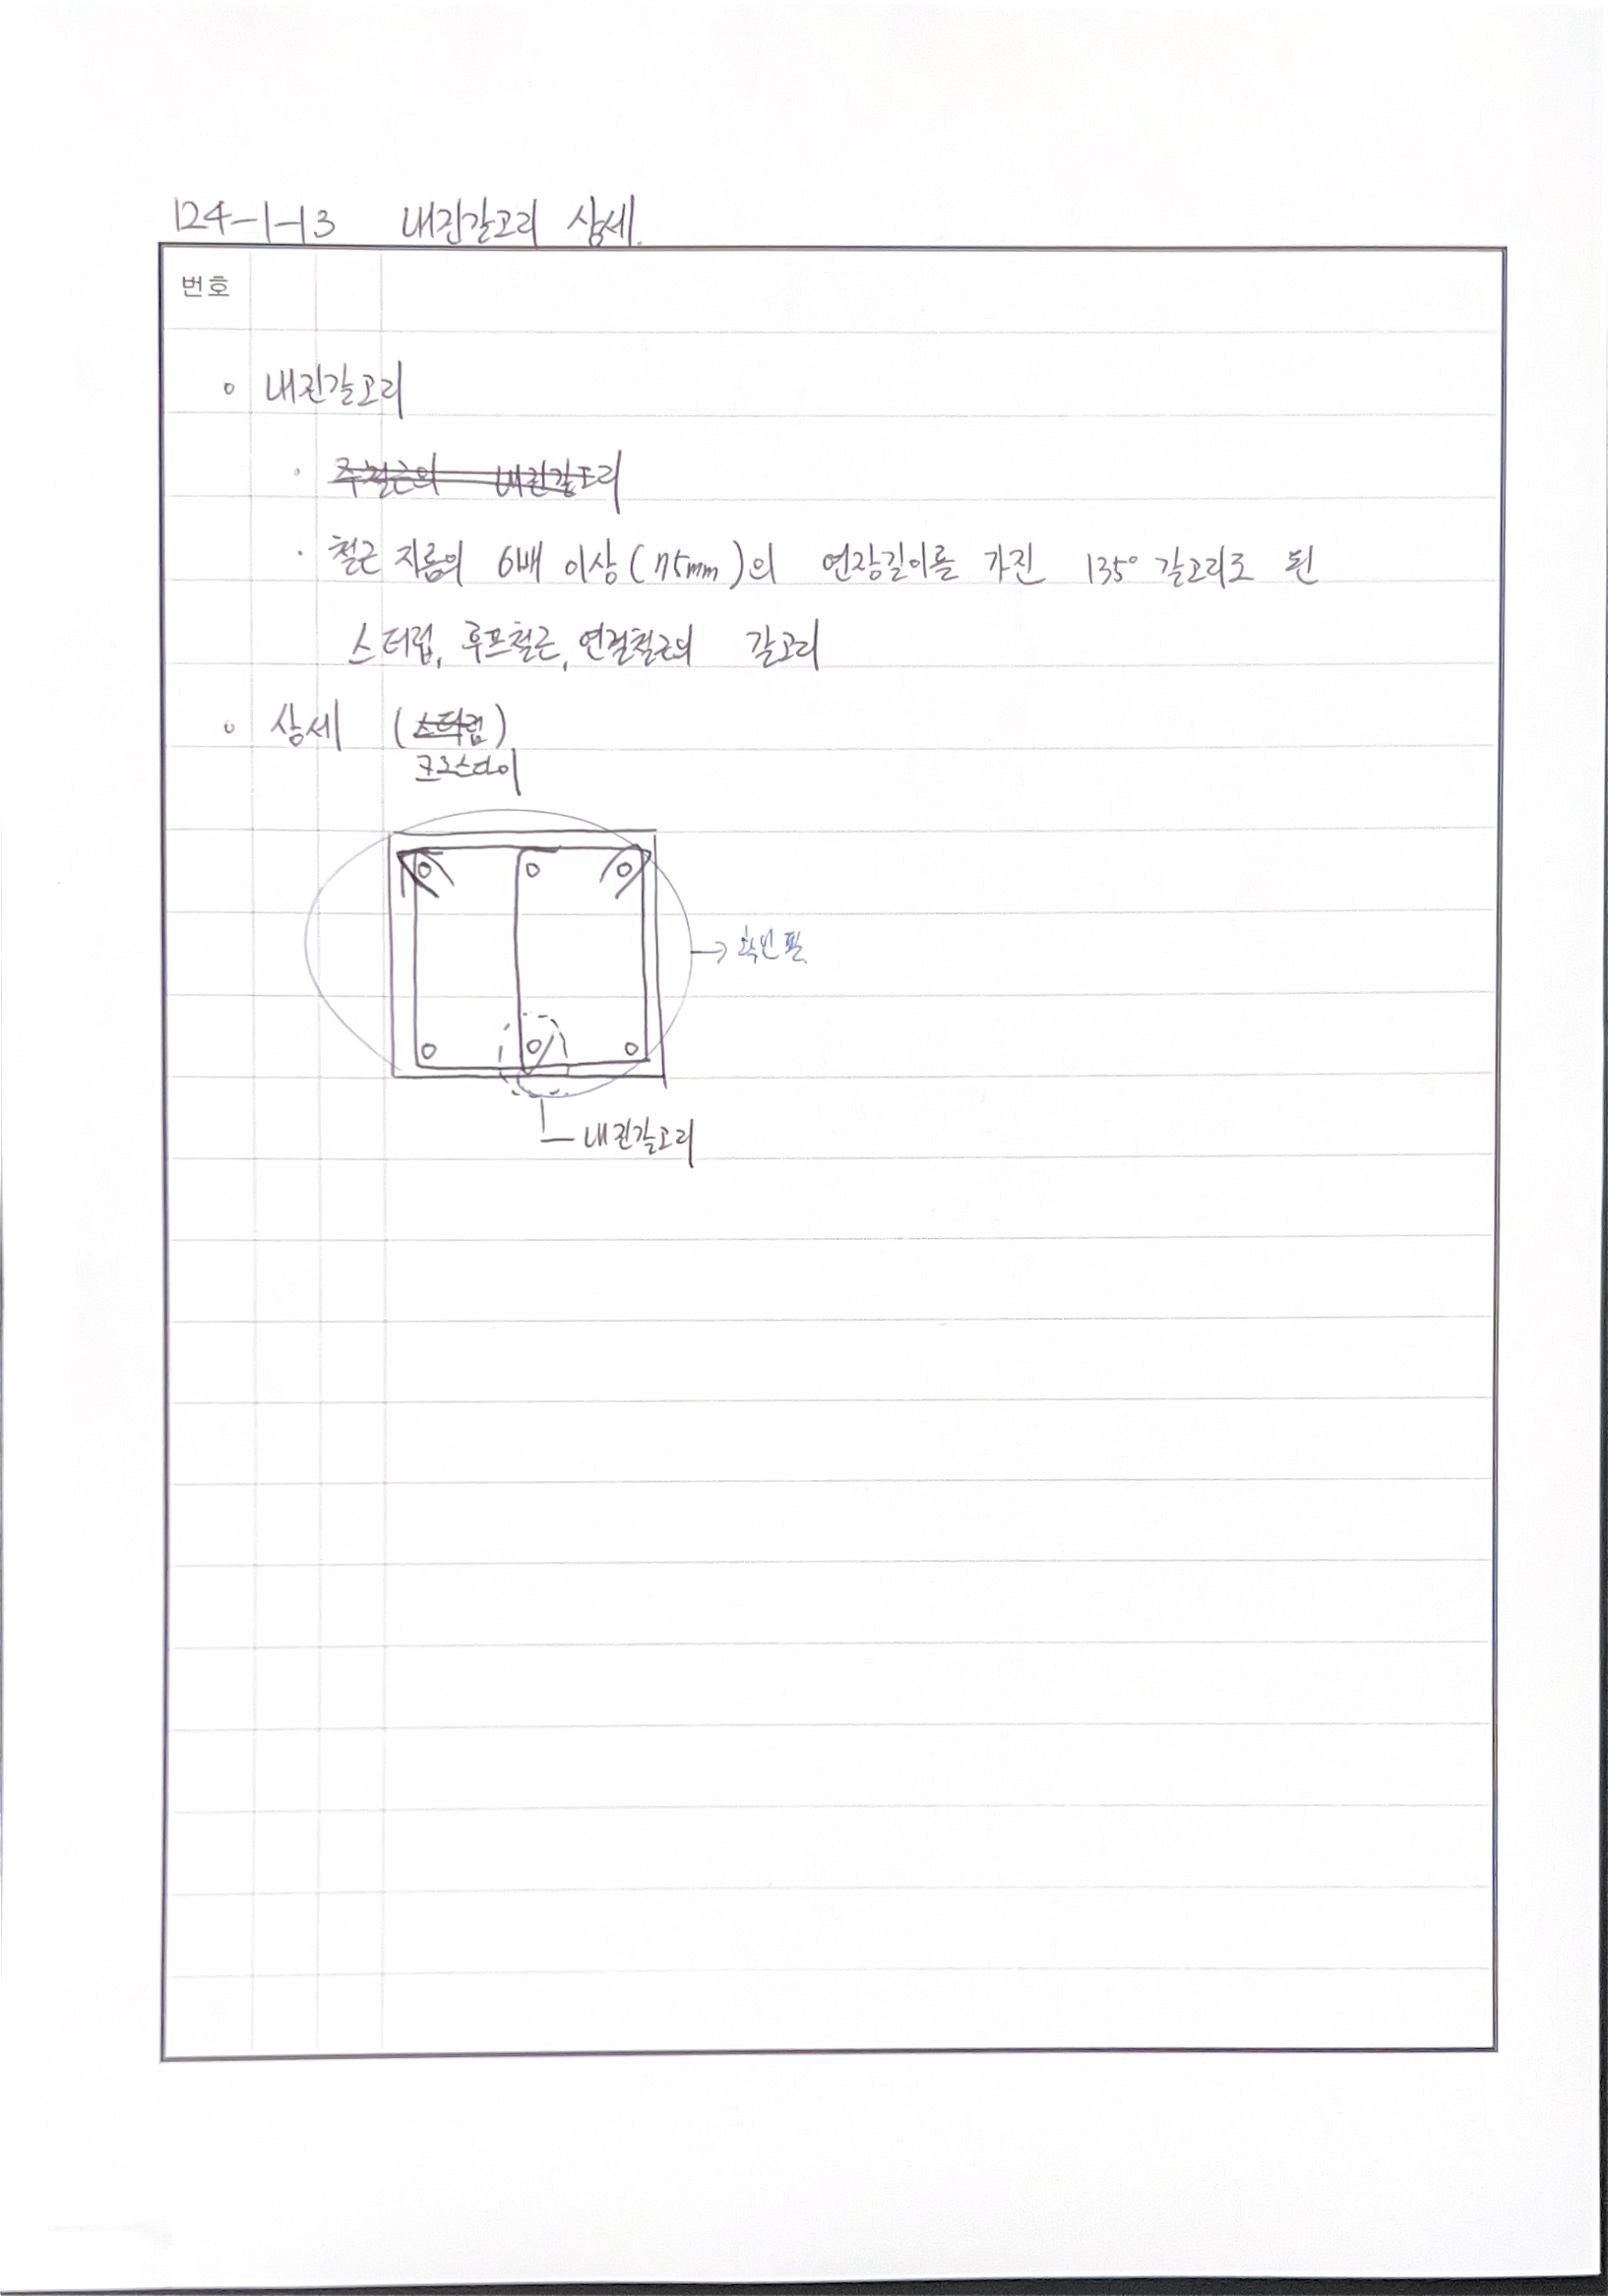 124-1-13 내진갈고리 상세.
번호
◦ 내진갈고리
· 주철근의 내진갈고리
· 철근 지름의 6배 이상(75mm)의 연장길이를 가진 135° 갈고리로 된
스터럽, 후프철근, 연결철근의 갈고리
◦ 상세 (스터럽)
크로스타이
→ 확인 필.
내진갈고리